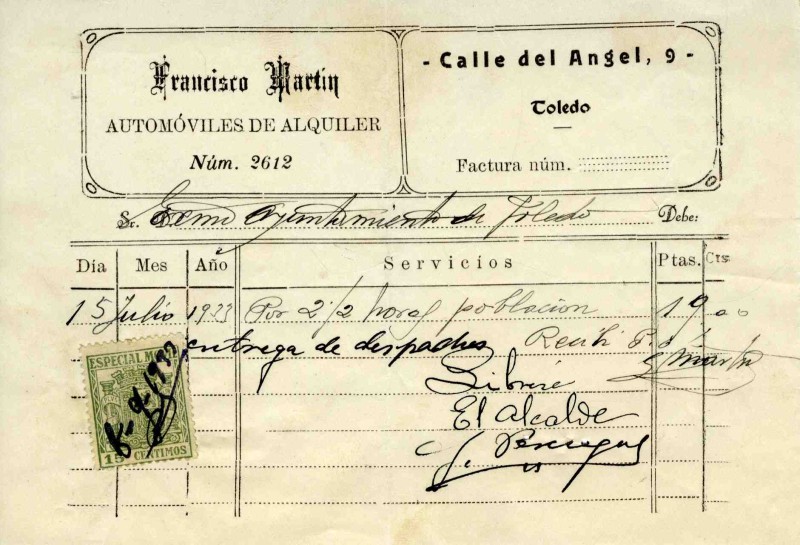 Francisco Martín
AUTOMÓVILES DE ALQUILER
Núm. 2612
- Calle del Angel, 9 -
Toledo
Factura núm.
Sr. Excmo Ayuntamiento de Toledo Debe:
Día Mes Año Servicios Ptas. Cts
15 Julio 1933 Por 2 1/2 horas población 19 00
entrega de despachos Recibí
F. Martín
Líbrese
El Alcalde
ESPECIAL M
1933
15 CENTIMOS